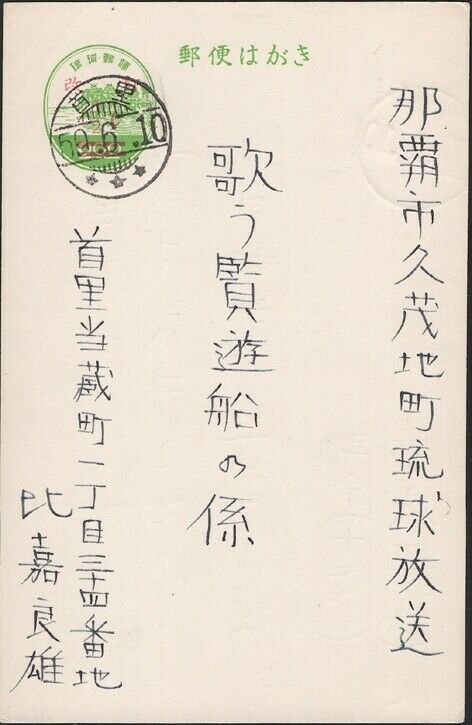 郵便はがき
琉球郵便
首里
59.6.10
那覇市久茂地町琉球放送
歌う覧遊船の係
首里当蔵町一丁目三十四番地
比嘉良雄